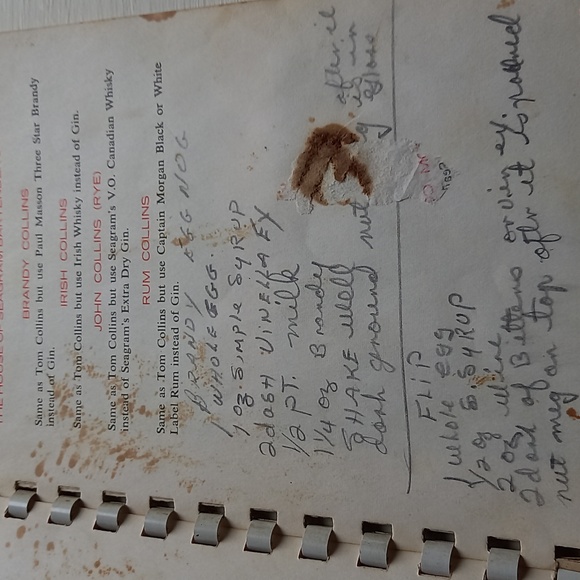 THE HOUSE OF SEAGRAM
BRANDY COLLINS
Same as Tom Collins but use Paul Masson Three Star Brandy
instead of Gin.
IRISH COLLINS
Same as Tom Collins but use Irish Whisky instead of Gin.
JOHN COLLINS (RYE)
Same as Tom Collins but use Seagram's V.O. Canadian Whisky
instead of Seagram's Extra Dry Gin.
RUM COLLINS
Same as Tom Collins but use Captain Morgan Black or White
Label Rum instead of Gin.
BRANDY EGG NOG
1 WHOLE EGG.
1 oz. SIMPLE SYRUP
2 dash VINELLA EX
1/2 PT. milk
1 1/4 oz Brandy
SHAKE well
dash ground nutmeg after it is in glass
FLIP
1 whole egg
1/2 oz S SYRUP
2 oz wine
2 dash of Bitters or
nutmeg on top after it is poured